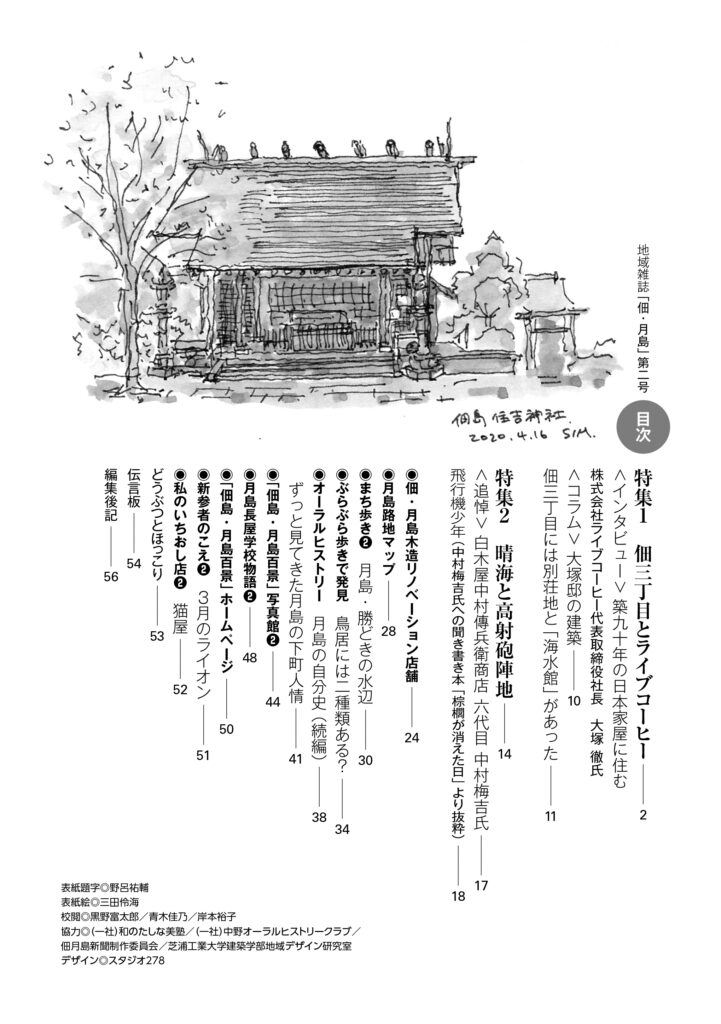 地域雑誌「佃・月島」第二号
目次
佃島 住吉神社.
2020.4.16 SIM.
特集1 佃三丁目とライブコーヒー――2
＜インタビュー＞ 築九十年の日本家屋に住む
株式会社ライブコーヒー代表取締役社長 大塚 徹氏
＜コラム＞ 大塚邸の建築――10
佃三丁目には別荘地と「海水館」があった――11
特集2 晴海と高射砲陣地――14
＜追悼＞ 白木屋中村傳兵衛商店 六代目 中村梅吉氏――17
飛行機少年（中村梅吉氏への聞き書き本「棕櫚が消えた日」より抜粋）――18
◉佃・月島木造リノベーション店舗――24
◉月島路地マップ――28
◉まち歩き❷ 月島・勝どきの水辺――30
◉ぶらぶら歩きで発見 鳥居には二種類ある？――34
◉オーラルヒストリー 月島の自分史（続編）――38
ずっと見てきた月島の下町人情――41
◉「佃島・月島百景」写真館❷――44
◉月島長屋学校物語❷――48
◉「佃島・月島百景」ホームページ――50
◉新参者のこえ❷ 3月のライオン――51
◉私のいちおし店❷ 猫屋――52
どうぶつとほっこり――53
伝言板――54
編集後記――56
表紙題字◎野呂祐輔
表紙絵◎三田伶海
校閲◎黒野富太郎／青木佳乃／岸本裕子
協力◎（一社）和のたしな美塾／（一社）中野オーラルヒストリークラブ／
佃月島新聞制作委員会／芝浦工業大学建築学部地域デザイン研究室
デザイン◎スタジオ278